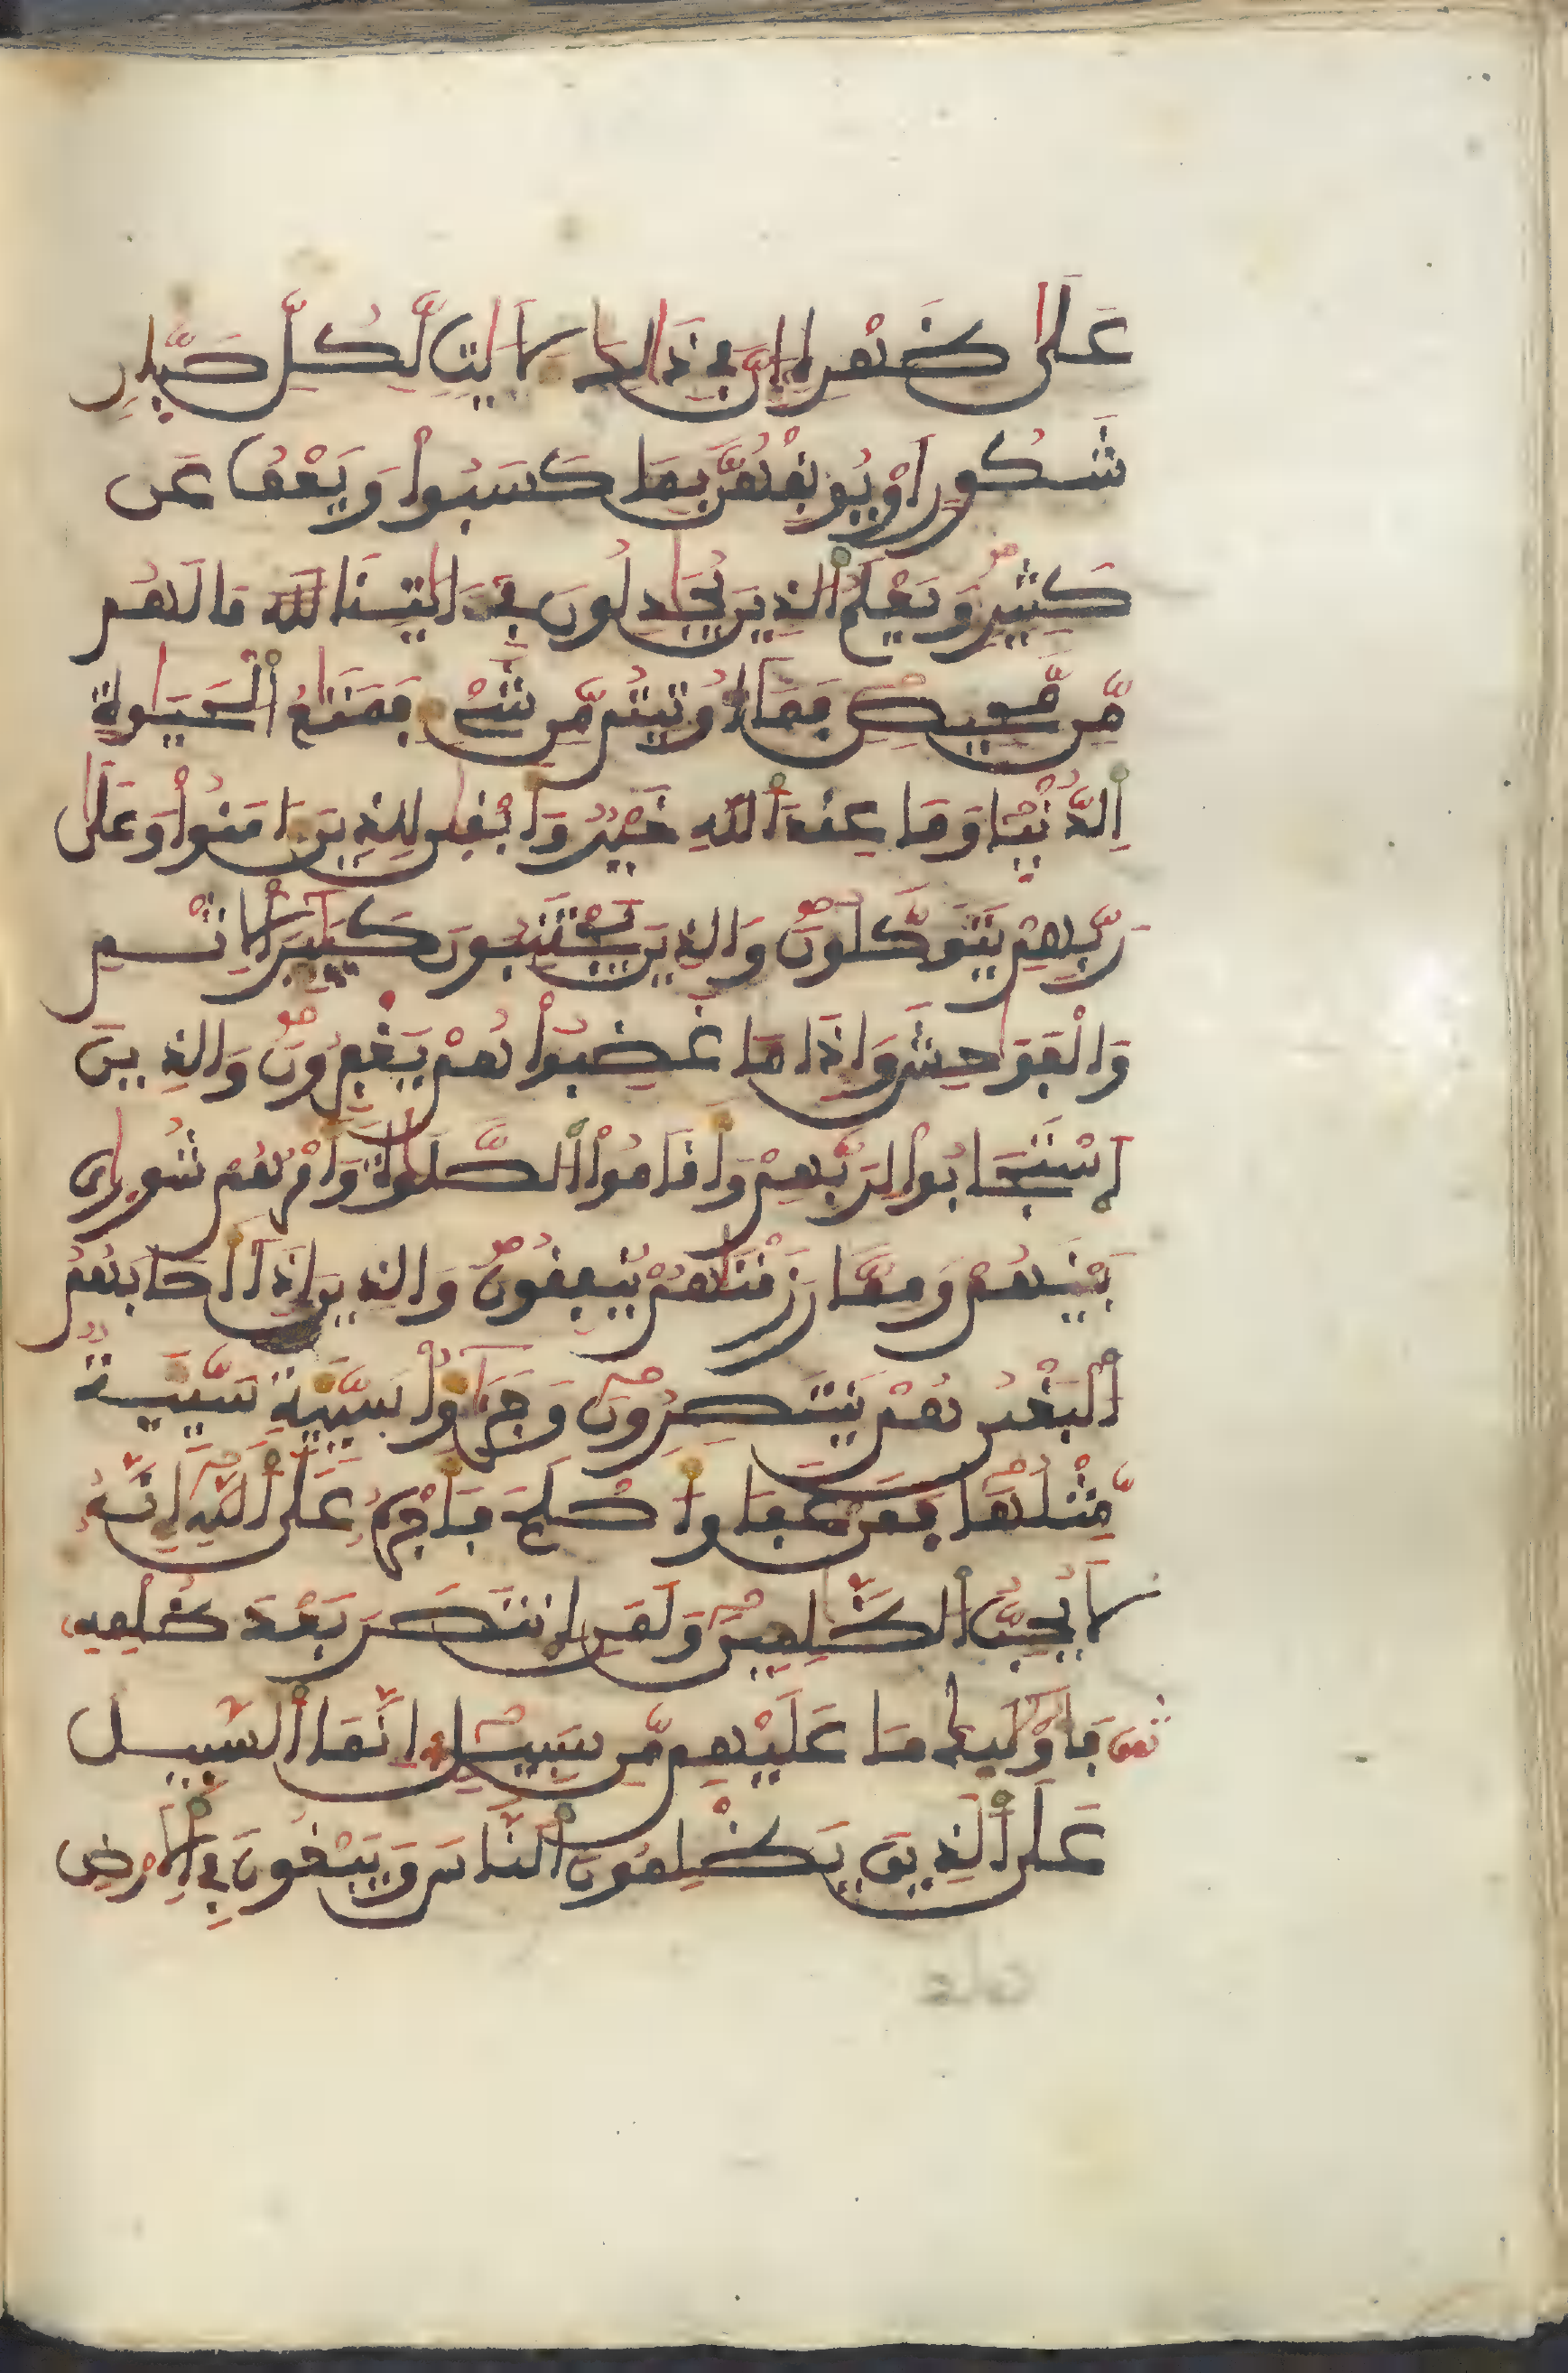 عَلَىٰ ظَهْرِهِ إِنَّ فِي ذَٰلِكَ لَآيَٰتٍ لِّكُلِّ صَبَّارٍ
شَكُورٍ أَوْ يُوبِقْهُنَّ بِمَا كَسَبُواْ وَيَعْفُ عَن
كَثِيرٍ وَيَعْلَمُ ٱلذِينَ يُجَٰدِلُونَ فِي ءَايَٰتِنَا مَا لَهُم
مِّن مَّحِيصٍ فَمَا أُوتِيتُم مِّن شَيْءٍ فَمَتَٰعُ ٱلْحَيَوٰةِ
ٱلدُّنْيَا وَمَا عِندَ ٱللَّهِ خَيْرٌ وَأَبْقَىٰ لِلذِينَ ءَامَنُواْ وَعَلَىٰ
رَبِّهِمْ يَتَوَكَّلُونَ وَالذِينَ يَجْتَنِبُونَ كَبَٰئِرَ ٱلْإِثْمِ
وَالْفَوَٰحِشَ وَإِذَا مَا غَضِبُواْ هُمْ يَغْفِرُونَ وَالذِينَ
ٱسْتَجَابُواْ لِرَبِّهِمْ وَأَقَامُواْ ٱلصَّلَوٰةَ وَأَمْرُهُمْ شُورَىٰ
بَيْنَهُمْ وَمِمَّا رَزَقْنَٰهُمْ يُنفِقُونَ وَالذِينَ إِذَا أَصَابَهُمُ
ٱلْبَغْيُ هُمْ يَنتَصِرُونَ وَجَزَٰؤُاْ سَيِّئَةٍ سَيِّئَةٌ
مِّثْلُهَا فَمَنْ عَفَا وَأَصْلَحَ فَأَجْرُهُ عَلَى ٱللَّهِ إِنَّهُ
لَا يُحِبُّ ٱلظَّٰلِمِينَ وَلَمَنِ ٱنتَصَرَ بَعْدَ ظُلْمِهِ
ثمن فَأُوْلَٰئِكَ مَا عَلَيْهِم مِّن سَبِيلٍ إِنَّمَا ٱلسَّبِيلُ
عَلَى ٱلذِينَ يَظْلِمُونَ ٱلنَّاسَ وَيَبْغُونَ فِي ٱلْأَرْضِ